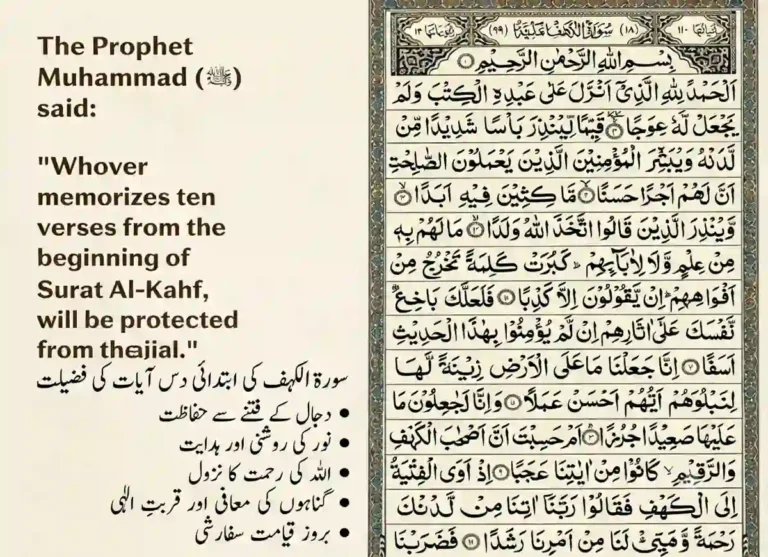 The Prophet
Muhammad (ﷺ)
said:
"Whover
memorizes ten
verses from the
beginning of
Surat Al-Kahf,
will be protected
from theajial."
سورۃ الکہف کی ابتدائی دس آیات کی فضیلت
• دجال کے فتنے سے حفاظت
• نور کی روشنی اور ہدایت
• اللہ کی رحمت کا نزول
• گناہوں کی معافی اور قربتِ الٰہی
• بروز قیامت سفارشی
١١٠ (١٨) سُوْرَةُ الْكَهْفِ (٩٩)
بِسْمِ اللّٰهِ الرَّحْمٰنِ الرَّحِيْمِ
اَلْحَمْدُ لِلّٰهِ الَّذِىْٓ اَنْزَلَ عَلٰى عَبْدِهِ الْكِتٰبَ وَلَمْ
يَجْعَلْ لَّهٗ عِوَجًا قَيِّمًا لِّيُنْذِرَ بَاْسًا شَدِيْدًا مِّنْ
لَّدُنْهُ وَيُبَشِّرَ الْمُؤْمِنِيْنَ الَّذِيْنَ يَعْمَلُوْنَ الصّٰلِحٰتِ
اَنَّ لَهُمْ اَجْرًا حَسَنًا مَّا كِثِيْنَ فِيْهِ اَبَدًا
وَّيُنْذِرَ الَّذِيْنَ قَالُوا اتَّخَذَ اللّٰهُ وَلَدًا مَا لَهُمْ بِهٖ
مِنْ عِلْمٍ وَّلَا لِاٰبَآئِهِمْ كَبُرَتْ كَلِمَةً تَخْرُجُ مِنْ
اَفْوَاهِهِمْ اِنْ يَّقُوْلُوْنَ اِلَّا كَذِبًا فَلَعَلَّكَ بَاخِعٌ
نَّفْسَكَ عَلٰٓى اٰثَارِهِمْ اِنْ لَّمْ يُؤْمِنُوْا بِهٰذَا الْحَدِيْثِ
اَسَفًا اِنَّا جَعَلْنَا مَا عَلَى الْاَرْضِ زِيْنَةً لَّهَا
لِنَبْلُوَهُمْ اَيُّهُمْ اَحْسَنُ عَمَلًا وَاِنَّا لَجٰعِلُوْنَ مَا
عَلَيْهَا صَعِيْدًا جُرُزًا اَمْ حَسِبْتَ اَنَّ اَصْحٰبَ الْكَهْفِ
وَالرَّقِيْمِ كَانُوْا مِنْ اٰيٰتِنَا عَجَبًا اِذْ اَوَى الْفِتْيَةُ
اِلَى الْكَهْفِ فَقَالُوْا رَبَّنَآ اٰتِنَا مِنْ لَّدُنْكَ
رَحْمَةً وَّهَيِّئْ لَنَا مِنْ اَمْرِنَا رَشَدًا فَضَرَبْنَا